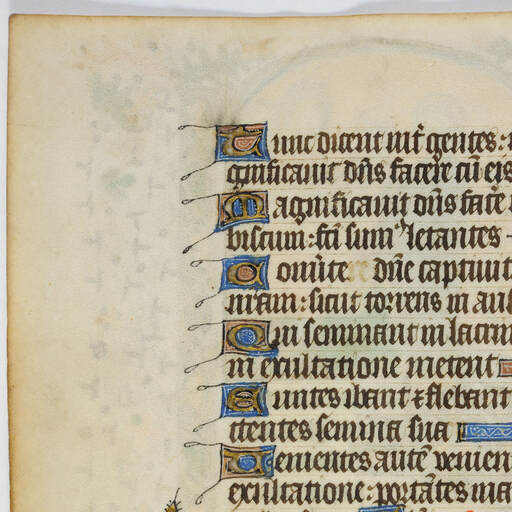 Tunc dicent int̃ gentes:
gnificavit dñs facere cũ eis
Magnificavit dñs facẽ
biscum: fc̃i sumꝰ letantes
Conũte re dñe captivit
nr̃am: sicut torrens in aus
Qui seminant in lacrim
in exultatione metent
Euntes ibant ⁊ flebant
ittentes semina sua
Venientes autẽ venien
exultatione: portãtes ma